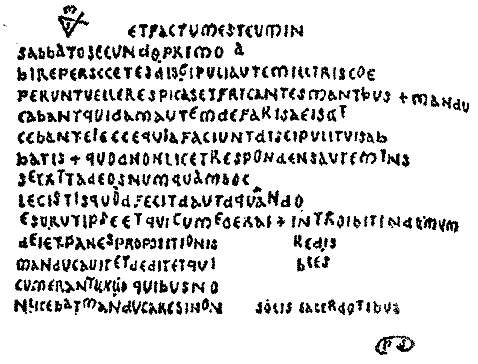 ETFACTUMESTEUMIN
SABBATOSECUNDOPRIMO A
BIREPERSCCETESDISCIPULIAUTEMILLIRISCOE
PERUNTUELLERESPICASETFRICANTESMANTBUS + MANDU
CABANTQUIDAMAUTEMDEFARISAEISAT
CEBANTELECCEQUIAFACIUNTDISCIPULITUISAB
BATIS + QUODNONLICETRESPONDENSAUTEMINS
SETXTTADEOSNUMQUAMBOC
LECISTISQUODFECITDAUTDQUANDO
ESURUTIPSEETQUICUMEOERAI + INTROIBITINDUMUM
DEIETPANESPROPOSITIONIS REDIS
MANDUCAUITETDEDITETQUI BLES
CUMERANTUXUO QUIBUSNO
NLICEBATMANDUCARESINON SOLIS SACERDOTIBUS
PS